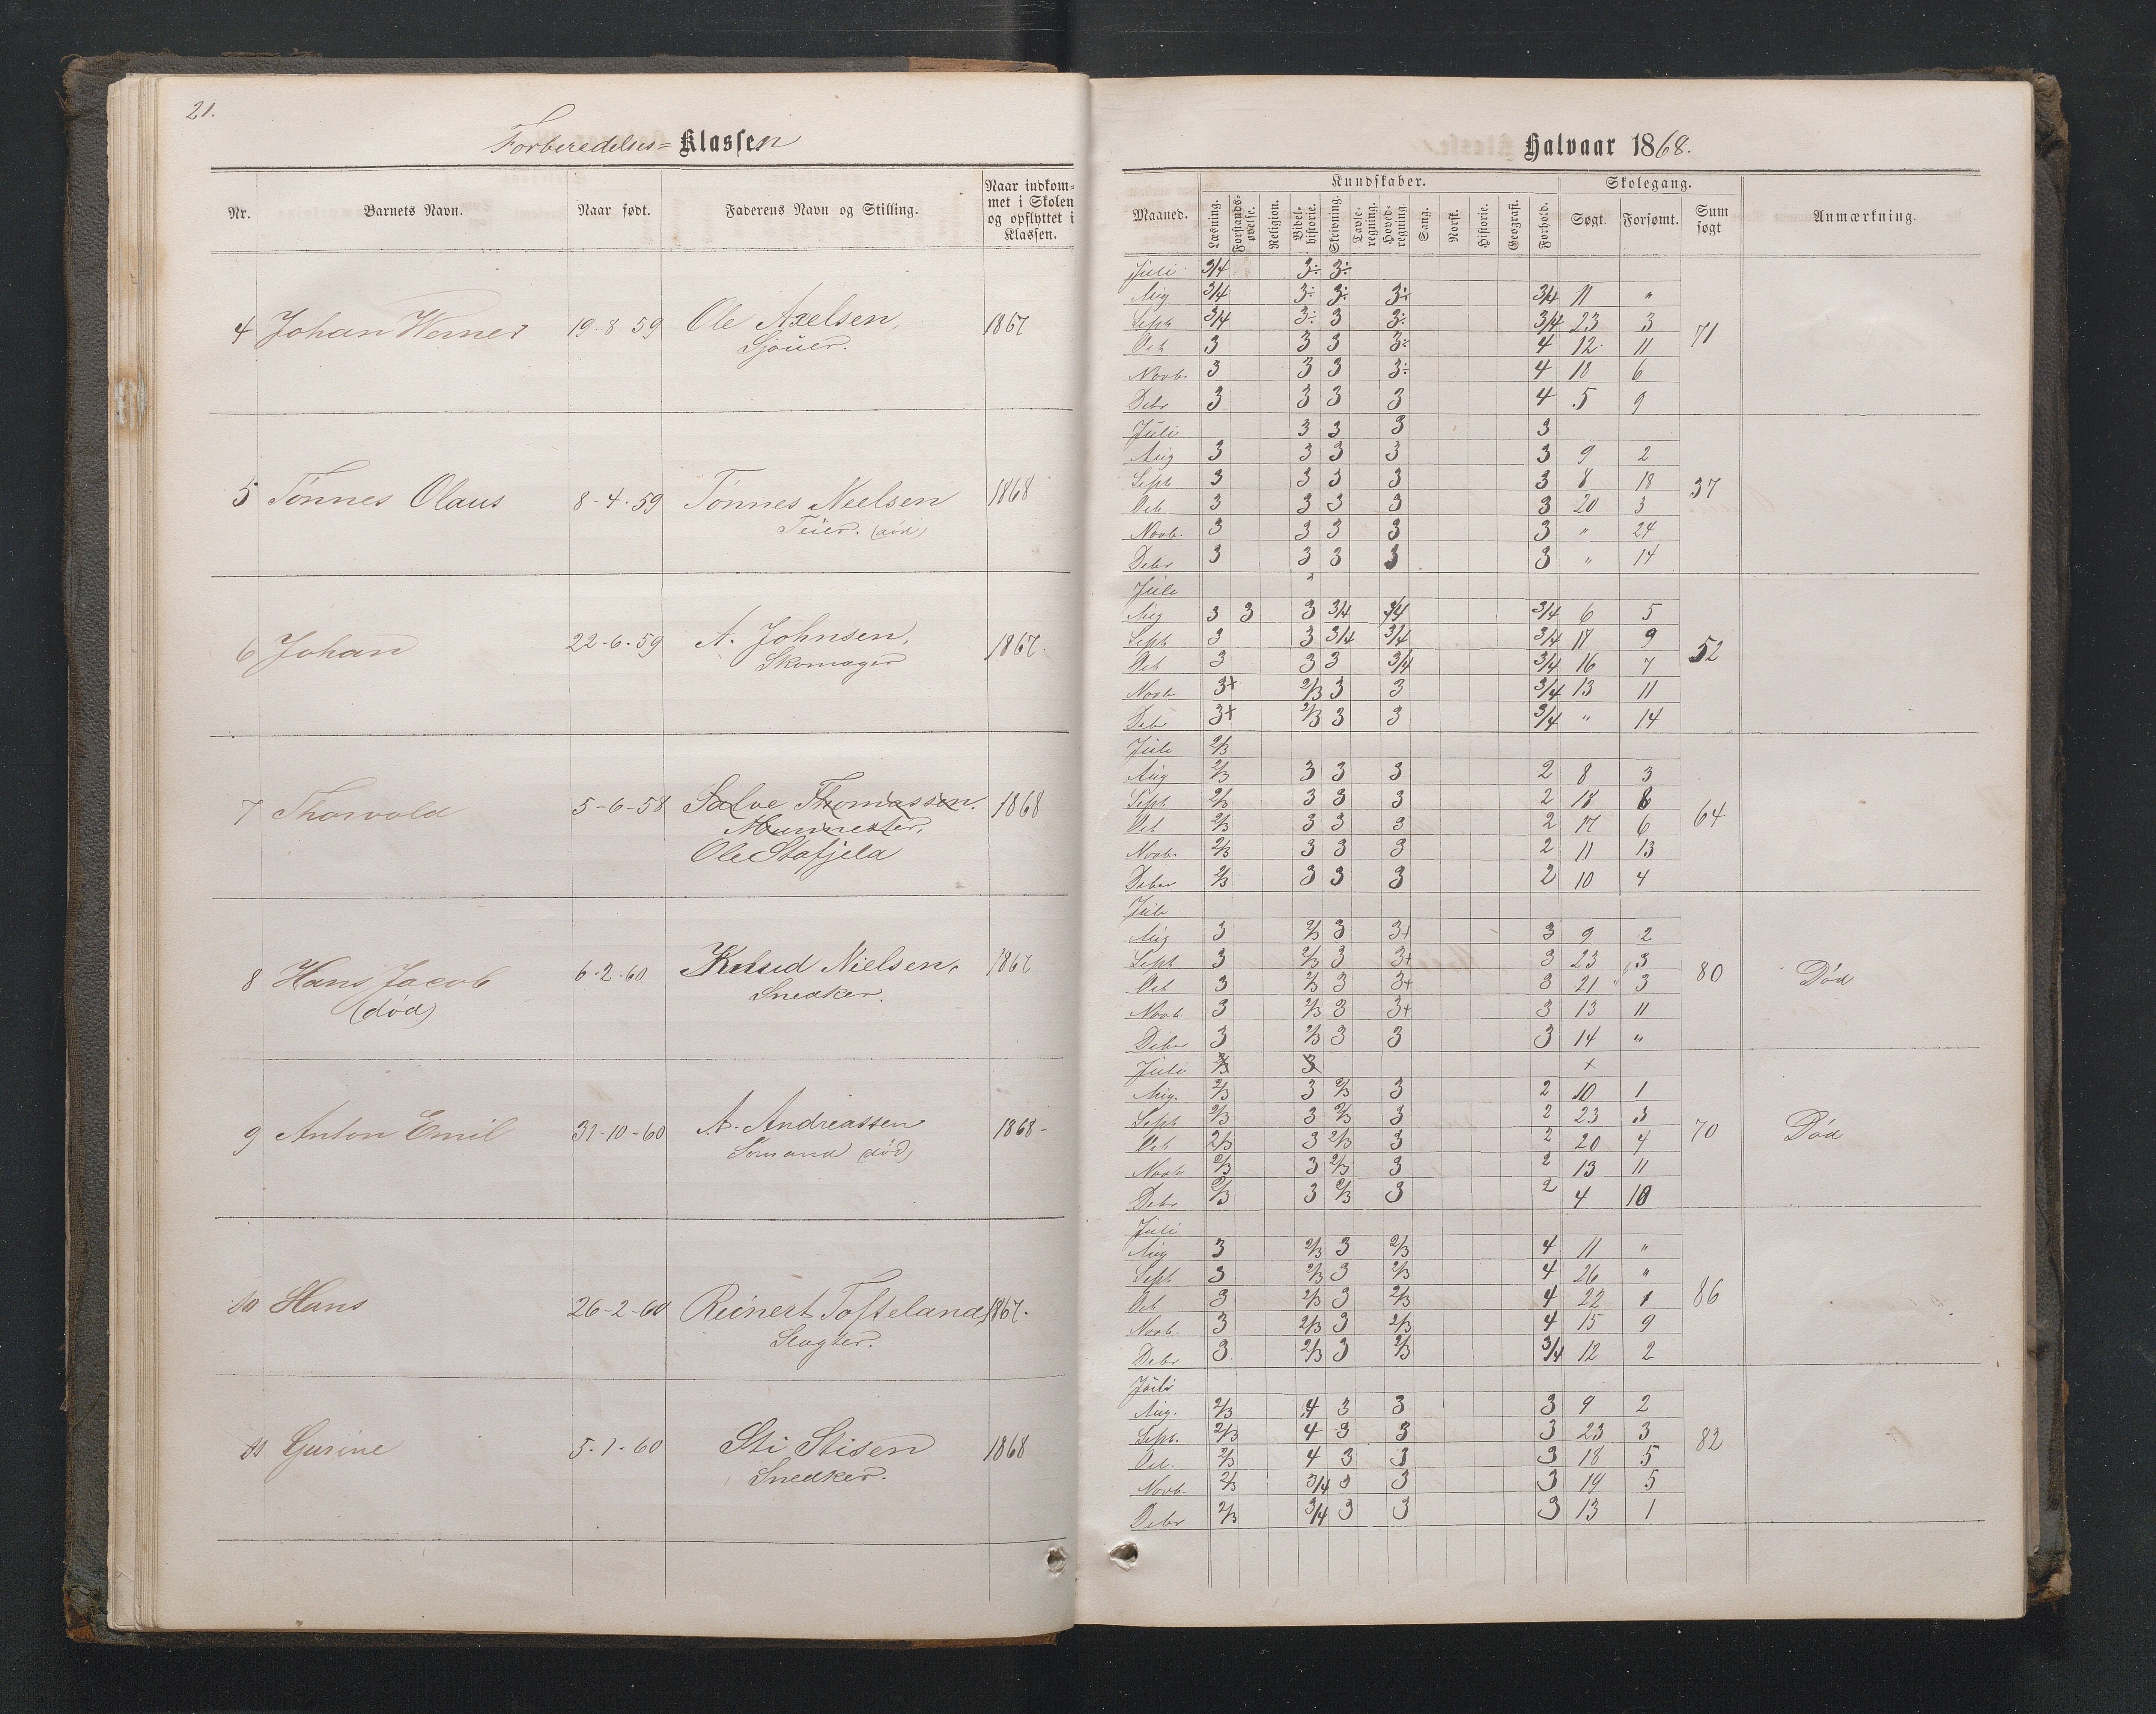 21.
Forberedelses= Klassen
Nr.
Barnets Navn.
Naar født.
Faderens Navn og Stilling.
Naar indkom-
met i Skolen
og opflyttet i
Klassen.
4 Johan Werner 19-8-59 Ole Axelsen, 1867
Sjøuer.
5 Tønnes Olaus 8-4-59 Tønnes Nielsen 1868
(død)
6 Johan 22-6-59 A. Johnsen, 1867.
Skomager
7 Thorvald 5-6-58 Salve Thomassen. 1868
Murmester,
Ole Stafjeld
8 Hans Jacob 6-2-60 Knud Nielsen, 1867
(død) Snedker.
9 Anton Emil 31-10-60 A. Andreassen 1868-
Sømand (død)
10 Hans 26-2-60 Reinert Tofteland, 1867.
Slagter.
11 Gurine 5-1-60 Sti Stisen 1868
Snedker.
Halvaar 1868.
Maaned.
Kundskaber.
Skolegang.
Læsning.
Forstands-
øvelse.
Religion.
Bibel-
historie.
Skrivning.
Tavle-
regning.
Hoved-
regning.
Sang.
Norsk.
Historie.
Geografi.
Forhold.
Søgt.
Forsømt.
Sum
søgt
Anmærkning.
Juli 3/4 3÷ 3÷
Aug 3/4 3÷ 3÷ 3÷ 3/4 11 "
Sept 3/4 3÷ 3 3÷ 3/4 23 3 71
Oct 3 3 3 3÷ 4 12 11
Novb. 3 3 3 3÷ 4 18 6
Debr 3 3 3 3 4 5 9
Juli 3 3 3 3
Aug 3 3 3 3 3 9 2
Sept 3 3 3 3 3 8 18 37
Oct. 3 3 3 3 3 20 3
Novb. 3 3 3 3 3 " 24
Debr 3 3 3 3 3 " 14
Juli
Aug 3 3 3 3/4 3/4 3/4 6 5
Sept 3 3 3/4 3/4 3/4 17 9 52
Oct 3 3 3 3/4 3/4 16 7
Novb 3+ 2/3 3 3 3/4 13 11
Debr 3+ 2/3 3 3 3/4 " 14
Juli 2/3
Aug 2/3 3 3 3 2 8 3
Sept 2/3 3 3 3 2 18 8 64
Oct 2/3 3 3 3 2 17 6
Novb. 2/3 3 3 3 2 11 13
Debr 2/3 3 3 3 2 10 4
Juli
Aug 3 2/3 3 3+ 3 9 2
Sept 3 2/3 3 3+ 3 23 3 80 Død
Oct 3 2/3 3 3+ 3 21 3
Novb. 3 2/3 3 3+ 3 13 11
Debr 3 2/3 3 3 3 14 "
Juli 2/3 3 +
Aug. 2/3 3 2/3 3 2 10 1
Sept 2/3 3 2/3 3 2 23 3 70 Død
Oct 2/3 3 2/3 3 2 20 4
Novb 2/3 3 2/3 3 2 13 11
Debr 2/3 3 2/3 3 2 4 10
Juli
Aug 3 2/3 3 2/3 4 11 "
Sept 3 2/3 3 2/3 4 26 " 86
Oct 3 2/3 3 2/3 4 22 1
Novb. 3 2/3 3 2/3 4 15 9
Debr 3 2/3 3 2/3 3/4 12 2
Juli
Aug. 2/3 4 3 3 3 9 2
Sept. 2/3 4 3 3 3 23 3 82
Oct. 2/3 4 3 3 3 18 5
Novb. 2/3 3/4 3 3 3 19 5
Debr 2/3 3/4 3 3 3 13 1